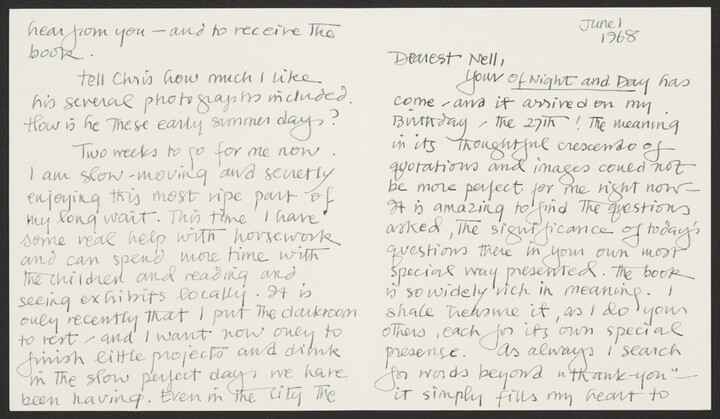 June 1
1968
Dearest Nell,
Your Of Night and Day has
come - and it arrived on my
Birthday - the 27th! The meaning
in its thoughtful crescendo of
quotations and images could not
be more perfect for me right now—
It is amazing to find the questions
asked, the significance of today's
questions there in your own most
special way presented. The book
is so widely rich in meaning. I
shall treasure it, as I do your
others, each for its own special
presence. As always I search
for words beyond "thank-you"—
it simply fills my heart to
hear from you — and to receive the
book.
Tell Chris how much I like
his several photographs included.
How is he these early summer days?
Two weeks to go for me now.
I am slow-moving and secretly
enjoying this most ripe part of
my long wait. This time I have
some real help with housework
and can spend more time with
the children and reading and
seeing exhibits locally. It is
only recently that I put the darkroom
to rest - and I want now only to
finish little projects and drink
in the slow perfect days we have
been having. Even in the City the